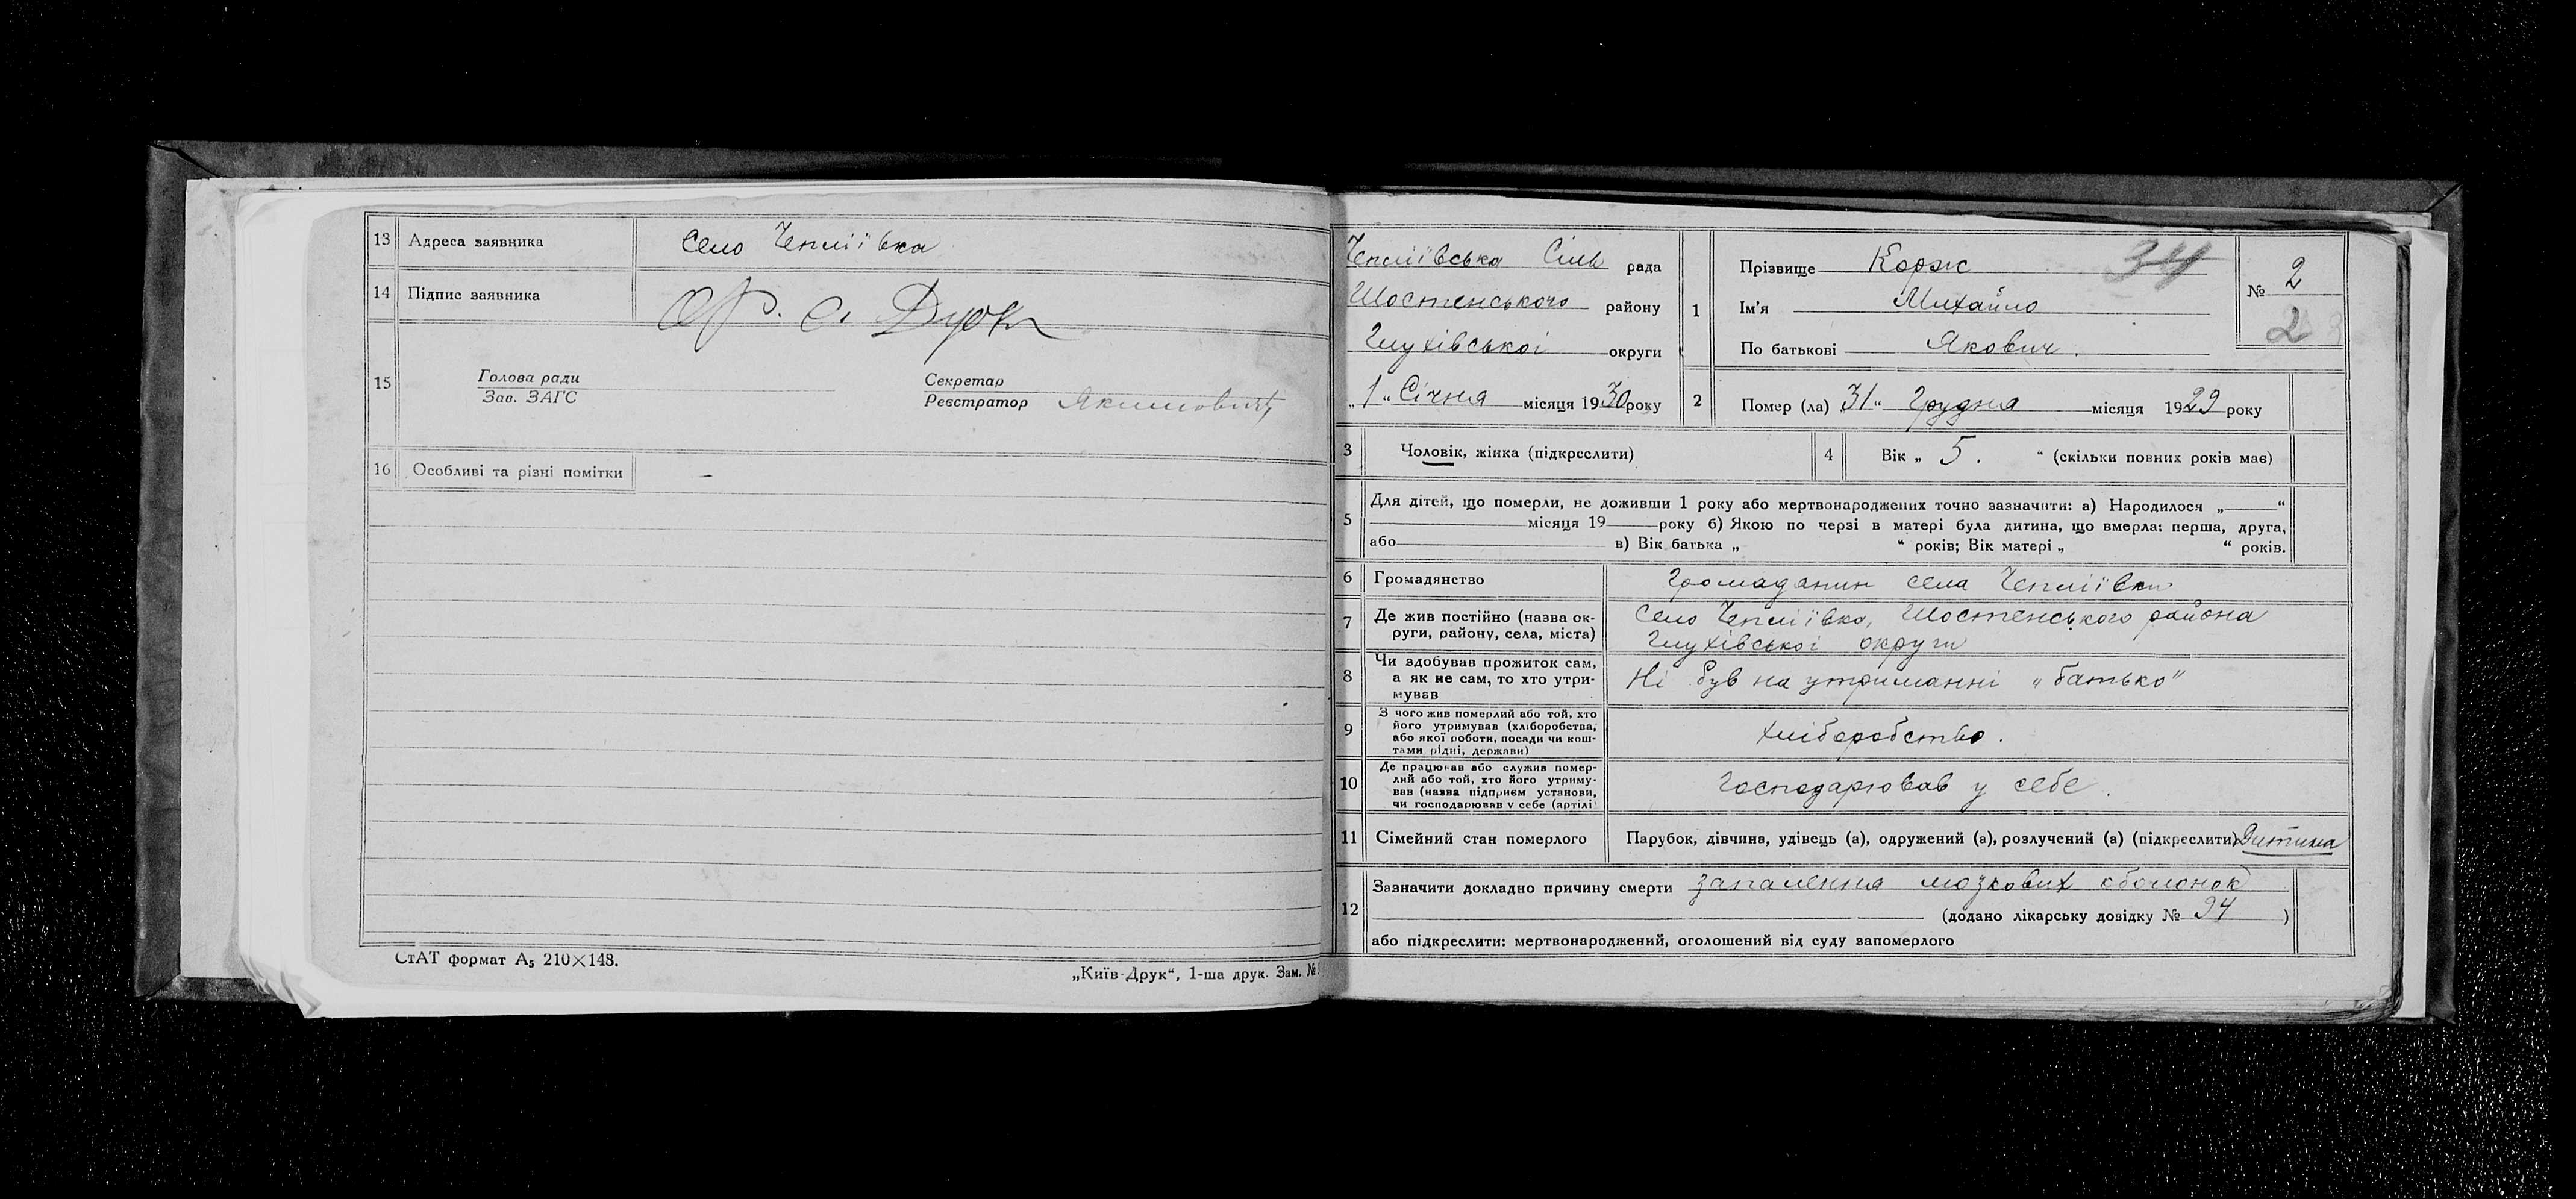 13 Адреса заявника Село Чепліївка
14 Підпис заявника
15 Голова ради
Зав. ЗАГС
Секретар
Реєстратор Якимович
16 Особливі та різні помітки -
СтАТ формат А₅ 210×148.
„Київ-Друк“, 1-ша друк. Зам. №
Чепліївська Сіль рада
Шостенського району
Глухівської округи
„1“ Січня місяця 1930 року
1 Прізвище Корж 34
Ім'я Михайло
По батькові Якович.
№ 2
2
2 Помер (ла) 31“ Грудня місяця 1929 року
3 Чоловік, жінка (підкреслити)
4 Вік „ 5. “ (скільки повних років має)
5 Для дітей, що померли, не доживши 1 року або мертвонароджених точно зазначити: а) Народилося „——“
місяця 19——року б) Якою по черзі в матері була дитина, що вмерла: перша, друга,
або—— в) Вік батька „ “ років; Вік матері „ “ років.
6 Громадянство Громадянин села Чепліївки
7 Де жив постійно (назва ок-
руги, району, села, міста)
Село Чепліївка, Шостенського района
Глухівської округи
8 Чи здобував прожиток сам,
а як не сам, то хто утри-
мував
Ні був на утриманні „батько"
9 З чого жив померлий або той, хто
його утримував (хліборобства,
або якої роботи, посади чи кош-
тами рідні, держави)
хліборобство.
10 Де працював або служив помер-
лий або той, хто його утриму-
вав (назва підприєм установи,
чи господарював у себе (артілі
Господарював у себе.
11 Сімейний стан померлого Парубок, дівчина, удівець (а), одружений (а), розлучений (а) (підкреслити) Дитина
12 Зазначити докладно причину смерти запалення мозкових оболонок
(додано лікарську довідку № 94 )
або підкреслити: мертвонароджений, оголошений від суду запомерлого